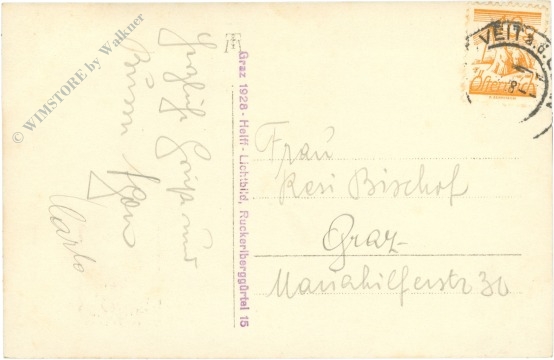 © WIMSTORE by Walkner
Herzliche Grüße und
Carlo
Graz 1928 - Helff - Lichtbild, Ruckerlberggürtel 15
VEIT a.d.
Österreich
Frau
Resi Bischof
Graz
Mariahilferstr 30